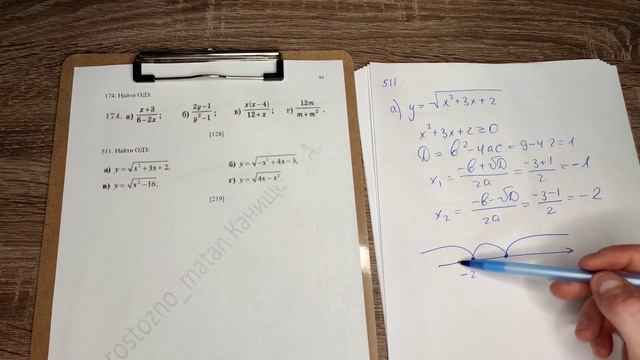 91
174. Найти ОДЗ:
174. а) (x+3)/(6−2x); б) (2y−1)/(y²−1); в) x(x−4)/(12+x); г) 12m/(m+m²).
[128]
511. Найти ОДЗ:
а) y=√(x²+3x+2); б) y=√(−x²+4x−3);
в) y=√(x²−16); г) y=√(4x−x²).
[219]
rostozno_matan Канище А.
511.
а) y=√(x²+3x+2)
x²+3x+2≥0
D=в²−4ac=9−4·2=1
x₁=(−в+√D)/2a=(−3+1)/2=−1
x₂=(−в−√D)/2a=(−3−1)/2=−2
−2